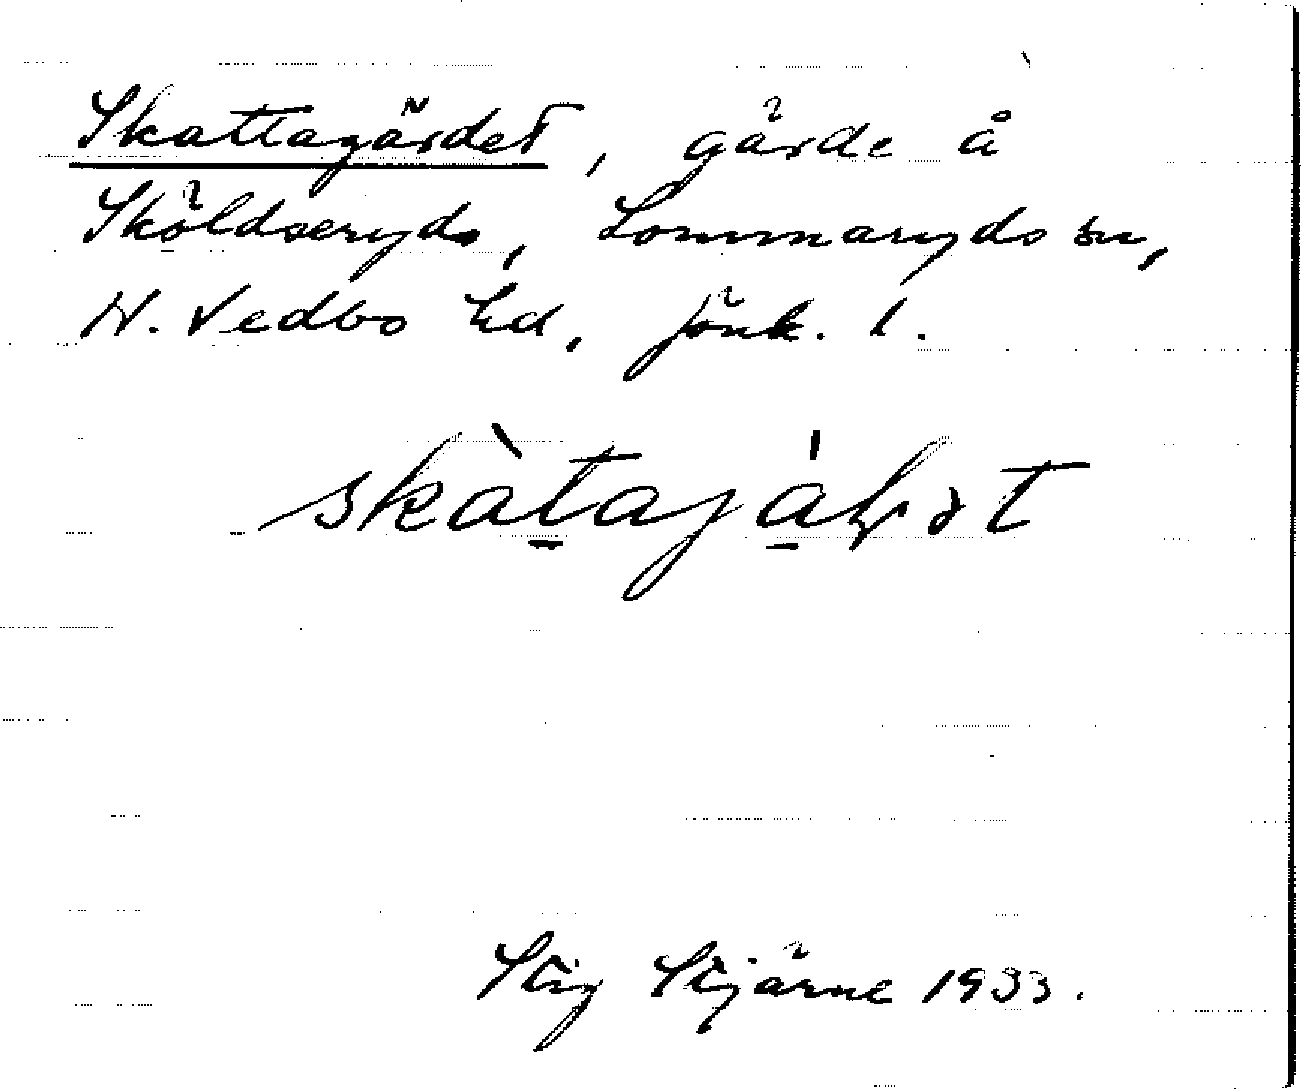 Skattagärdet, gärde å
Sköldseryds, Lommaryds sn,
N. Vedbo hd, Jönk. l.
Stig Stjärne 1933.